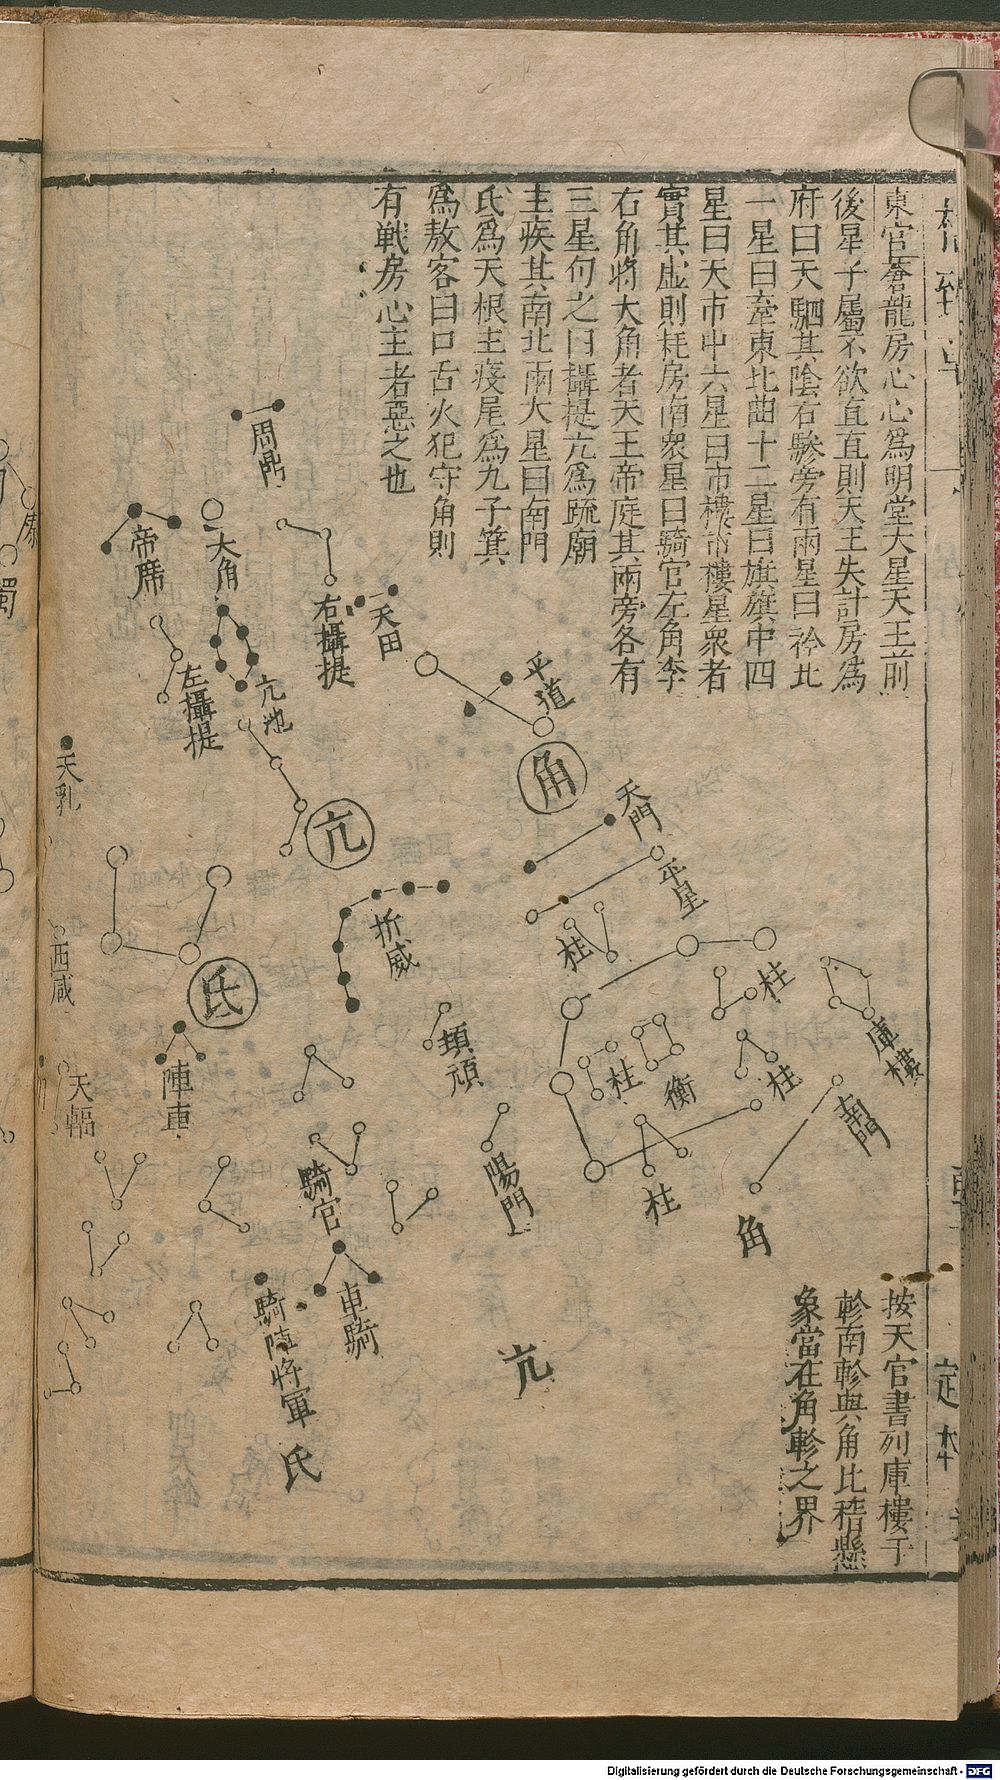 東官蒼龍房心心爲明堂大星天王前
後星子屬不欲直直則天王失計房爲
府曰天駟其陰右驂旁有兩星曰衿北
一星曰舝東北曲十二星曰旗旗中四
星曰天市中六星曰市樓市樓星衆者
實其虛則耗房南衆星曰騎官左角李
右角將大角者天王帝庭其兩旁各有
三星句之曰攝提亢爲疏廟
主疾其南北兩大星曰南門
氐爲天根主疫尾爲九子箕
爲敖客曰口舌火犯守角則
有戰房心主者惡之也
周鼎
帝席
大角
右攝提
天田
平道
左攝提
亢池
角
天門
亢
平星
天乳
折威
柱
柱
氐
西咸
庫樓
頡頏
柱
衡
柱
陣車
天輻
南門
騎官
陽門
柱
角
車騎
騎陣將軍
亢
氐
按天官書列庫樓于
軫南軫與角比稽懸
象當在角軫之界
定本
Digitalisierung gefördert durch die Deutsche Forschungsgemeinschaft - DFG